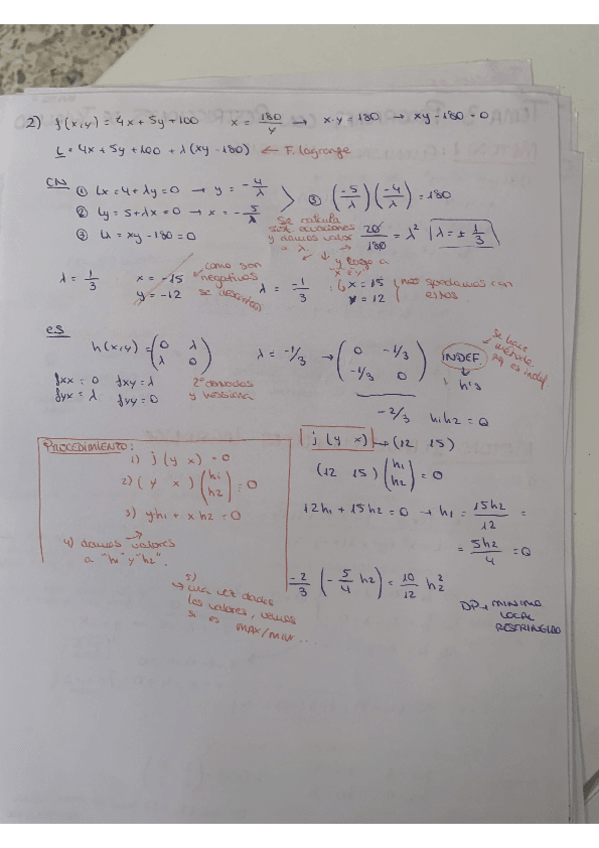 2) f(x,y) = 4x + 5y + 100 x = 180/y → x·y = 180 → xy - 180 = 0
L = 4x + 5y + 100 + λ(xy - 180) ← F. lagrange
CN ① Lx = 4 + λy = 0 → y = -4/λ
② Ly = 5 + λx = 0 → x = -5/λ
③ Lλ = xy - 180 = 0
③ (-5/λ)(-4/λ) = 180
Se calcula
sist. ecuaciones
y damos valor
a λ.
20/180 = λ² | λ = ± 1/3
y luego a
x e y
λ = 1/3 x = -15
y = -12
como son
negativos
se descartan
λ = -1/3 x = 15
y = 12
nos quedamos con
estos.
CS
h(x,y) = (0 λ
λ 0)
λ = -1/3 → (0 -1/3
-1/3 0)
INDEF.
h's
Se hace
método
xq es indef.
fxx = 0 fxy = λ
fyx = λ fyy = 0
2ª derivadas
y hessiana
-2/3 h1h2 = Q
PROCEDIMIENTO:
1) j (y x) = 0
2) (y x) (h1
h2) = 0
3) yh1 + xh2 = 0
4) damos valores
a "h1" y "h2".
5)
→ una vez dados
los valores, vemos
si es
MAX/MIN...
j (y x) → (12 15)
(12 15) (h1
h2) = 0
12h1 + 15h2 = 0 → h1 = 15h2/12 =
= 5h2/4 = Q
-2/3 (-5/4 h2) = 10/12 h2²
DP → MINIMO
LOCAL
RESTRINGIDO